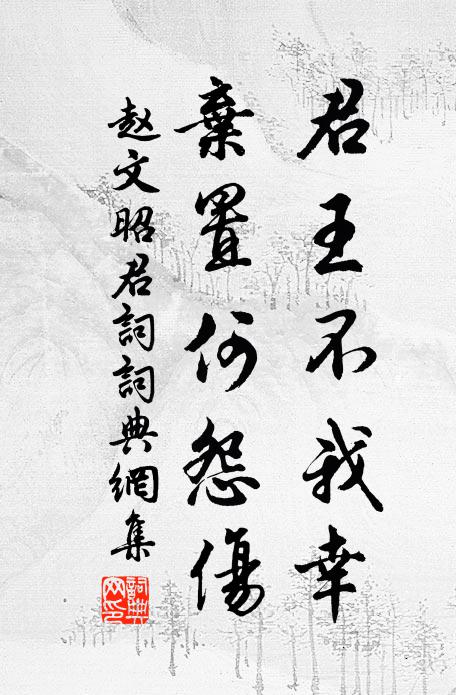 君王不我幸
棄置何怨傷
赵文昭君詞詞典網集
詞典网印